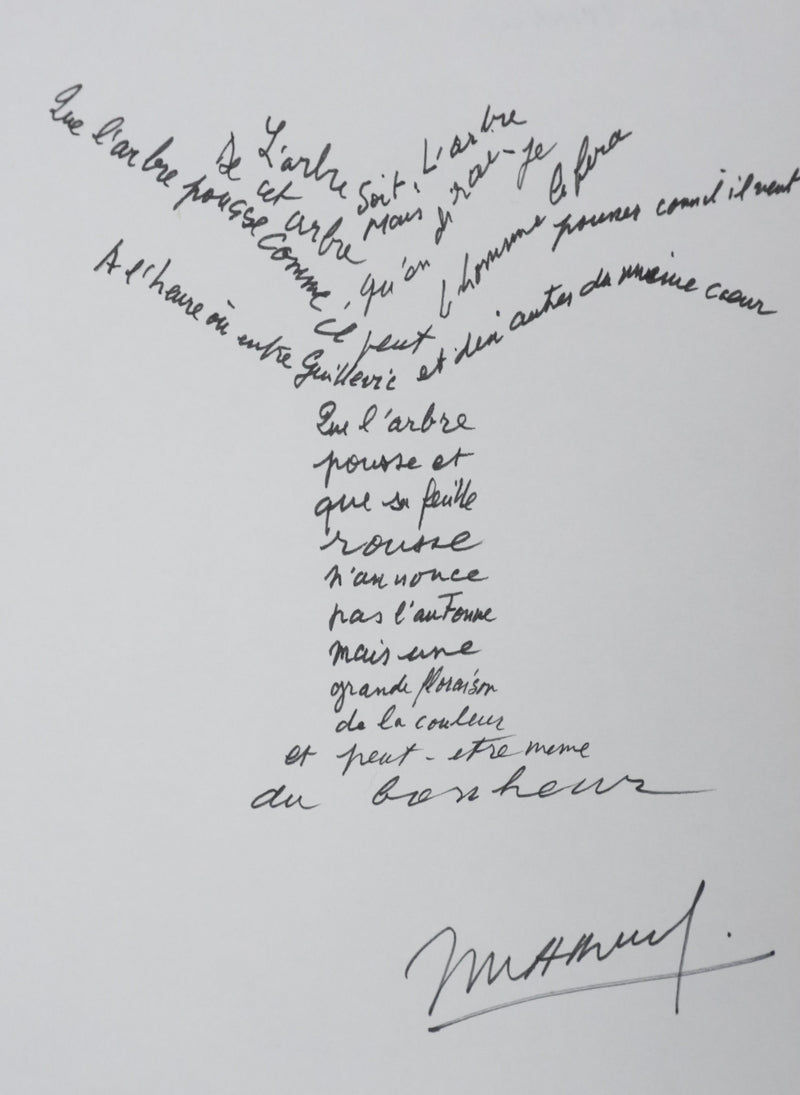 L'arbre soit, L'arbre
De cet arbre mais qu'en dirai-je
Que l'arbre pousse comme il peut l'homme le fera
pousser comme il veut
A l'heure où entre Guillevic et dix autres du même cœur
Que l'arbre
pousse et
que sa feuille
rousse
n'annonce
pas l'auTomne
mais une
grande floraison
de la couleur
et peut-etre meme
du bonheur